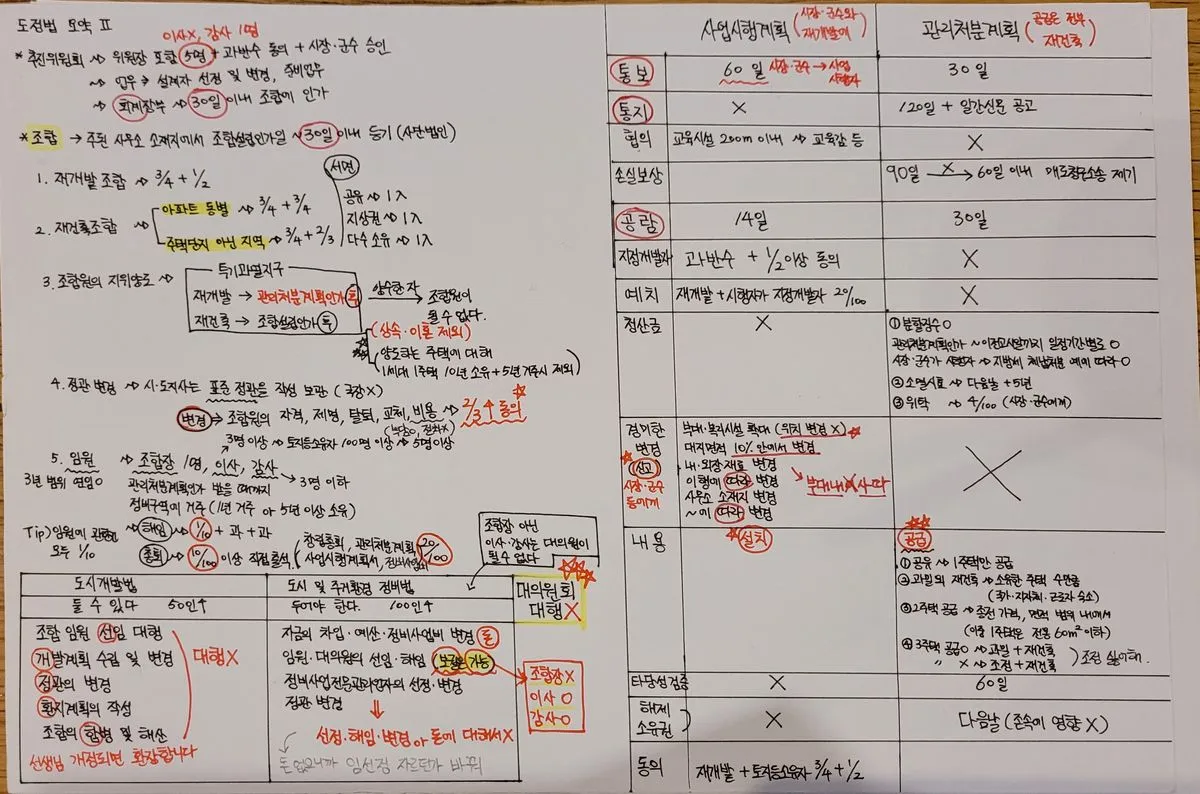 도정법 요약 Ⅱ
이사X, 감사 1명
* 추진위원회 → 위원장 포함 5명 + 과반수 동의 + 시장·군수 승인
→ 업무 → 설계자 선정 및 변경, 준비업무
→ 회계장부 → 30일 이내 조합에 인가
* 조합 → 주된 사무소 소재지에서 조합설립인가일 ~ 30일 이내 등기 (사단법인)
1. 재개발 조합 → 3/4 + 1/2
2. 재건축조합 → 아파트 동별 → 3/4 + 3/4
주택단지 아닌 지역 → 3/4 + 2/3
서면
공유 → 1人
지상권 → 1人
다수 소유 → 1人
3. 조합원의 지위양도 →
투기과열지구
재개발 → 관리처분계획인가 후
재건축 → 조합설립인가 후
양수한 자 → 조합원이
될 수 없다.
(상속·이혼 제외)
양도하는 주택에 대해
1세대 1주택 10년 소유 + 5년 거주시 제외
4. 정관 변경 → 시·도지사는 표준 정관을 작성 보관 (국장X)
변경 → 조합원의 자격, 제명, 탈퇴, 교체, 비용 → 2/3↑ 동의
3명 이상 → 토지등소유자 100명 이상 → 5명 이상
5. 임원 → 조합장 1명, 이사, 감사 → 3명 이하
3년 범위 연임O
관리처분계획인가 받을 때까지
정비구역에 거주 (1년 거주 or 5년 이상 소유)
Tip) 임원에 관한건
모두 1/10
→ 해임 → 1/10 + 과 + 과
총회 → 10/100 이상 직접 출석
창립총회, 관리처분계획
사업시행계획서, 정비사업비
20/100
조합장 아닌
이사·감사는 대의원이
될 수 없다
도시개발법
둘 수 있다 50인↑
조합 임원 선임 대행
개발계획 수립 및 변경
정관의 변경
환지계획의 작성
조합의 합병 및 해산
대행X
선생님 개정되면 환장합니다
도시 및 주거환경 정비법
두어야 한다. 100인↑
대의원회
대행X
자금의 차입·예산·정비사업비 변경 돈
임원·대의원의 선임·해임 (보궐은 가능)
정비사업전문관리업자의 선정·변경
정관 변경
조합장X
이사 O
감사 O
선정·해임·변경 or 돈에 대해서X
돈 없으니까 임선정 자르던가 바꿔
사업시행계획 (시장·군수와
재개발에)
관리처분계획 (공급은 전부
재건축)
통보 60일 시장·군수 → 사업
시행자
30일
통지 X 120일 + 일간신문 공고
협의 교육시설 200m 이내 → 교육감 등 X
손실보상 90일 X→ 60일 이내 매도청구소송 제기
공람 14일 30일
지정개발자 과반수 + 1/2 이상 동의 X
예치 재개발 + 시행자가 지정개발자 20/100 X
청산금 X
① 분할징수 O
관리처분계획인가 ~ 이전고시일까지 일정기간별로 O
시장·군수가 시행자 → 지방세 체납처분 예에 따라 O
② 소멸시효 → 다음날 + 5년
③ 위탁 → 4/100 (시장·군수에게)
경미한
변경
신고
시장·군수
등에게
부대·복리시설 확대 (위치 변경 X)
대지면적 10% 안에서 변경
내·외장 재료 변경
이행에 따라 변경
사무소 소재지 변경
~에 따라 변경
부대내 사따
X
내용 설치 공급
① 공유 → 1주택만 공급
② 과밀외 재건축 → 소유한 주택 수만큼
(국가·지자체·근로자 숙소)
③ 2주택 공급 → 종전 가격, 면적 범위 내에서
(이중 1주택은 전용 60m² 이하)
④ 3주택 공급O → 과밀 + 재건축
〃 X → 조정 + 재건축
조정 싫어해.
타당성검증 X 60일
해제
소유권
X 다음날 (존속에 영향 X)
동의 재개발 + 토지등소유자 3/4 + 1/2